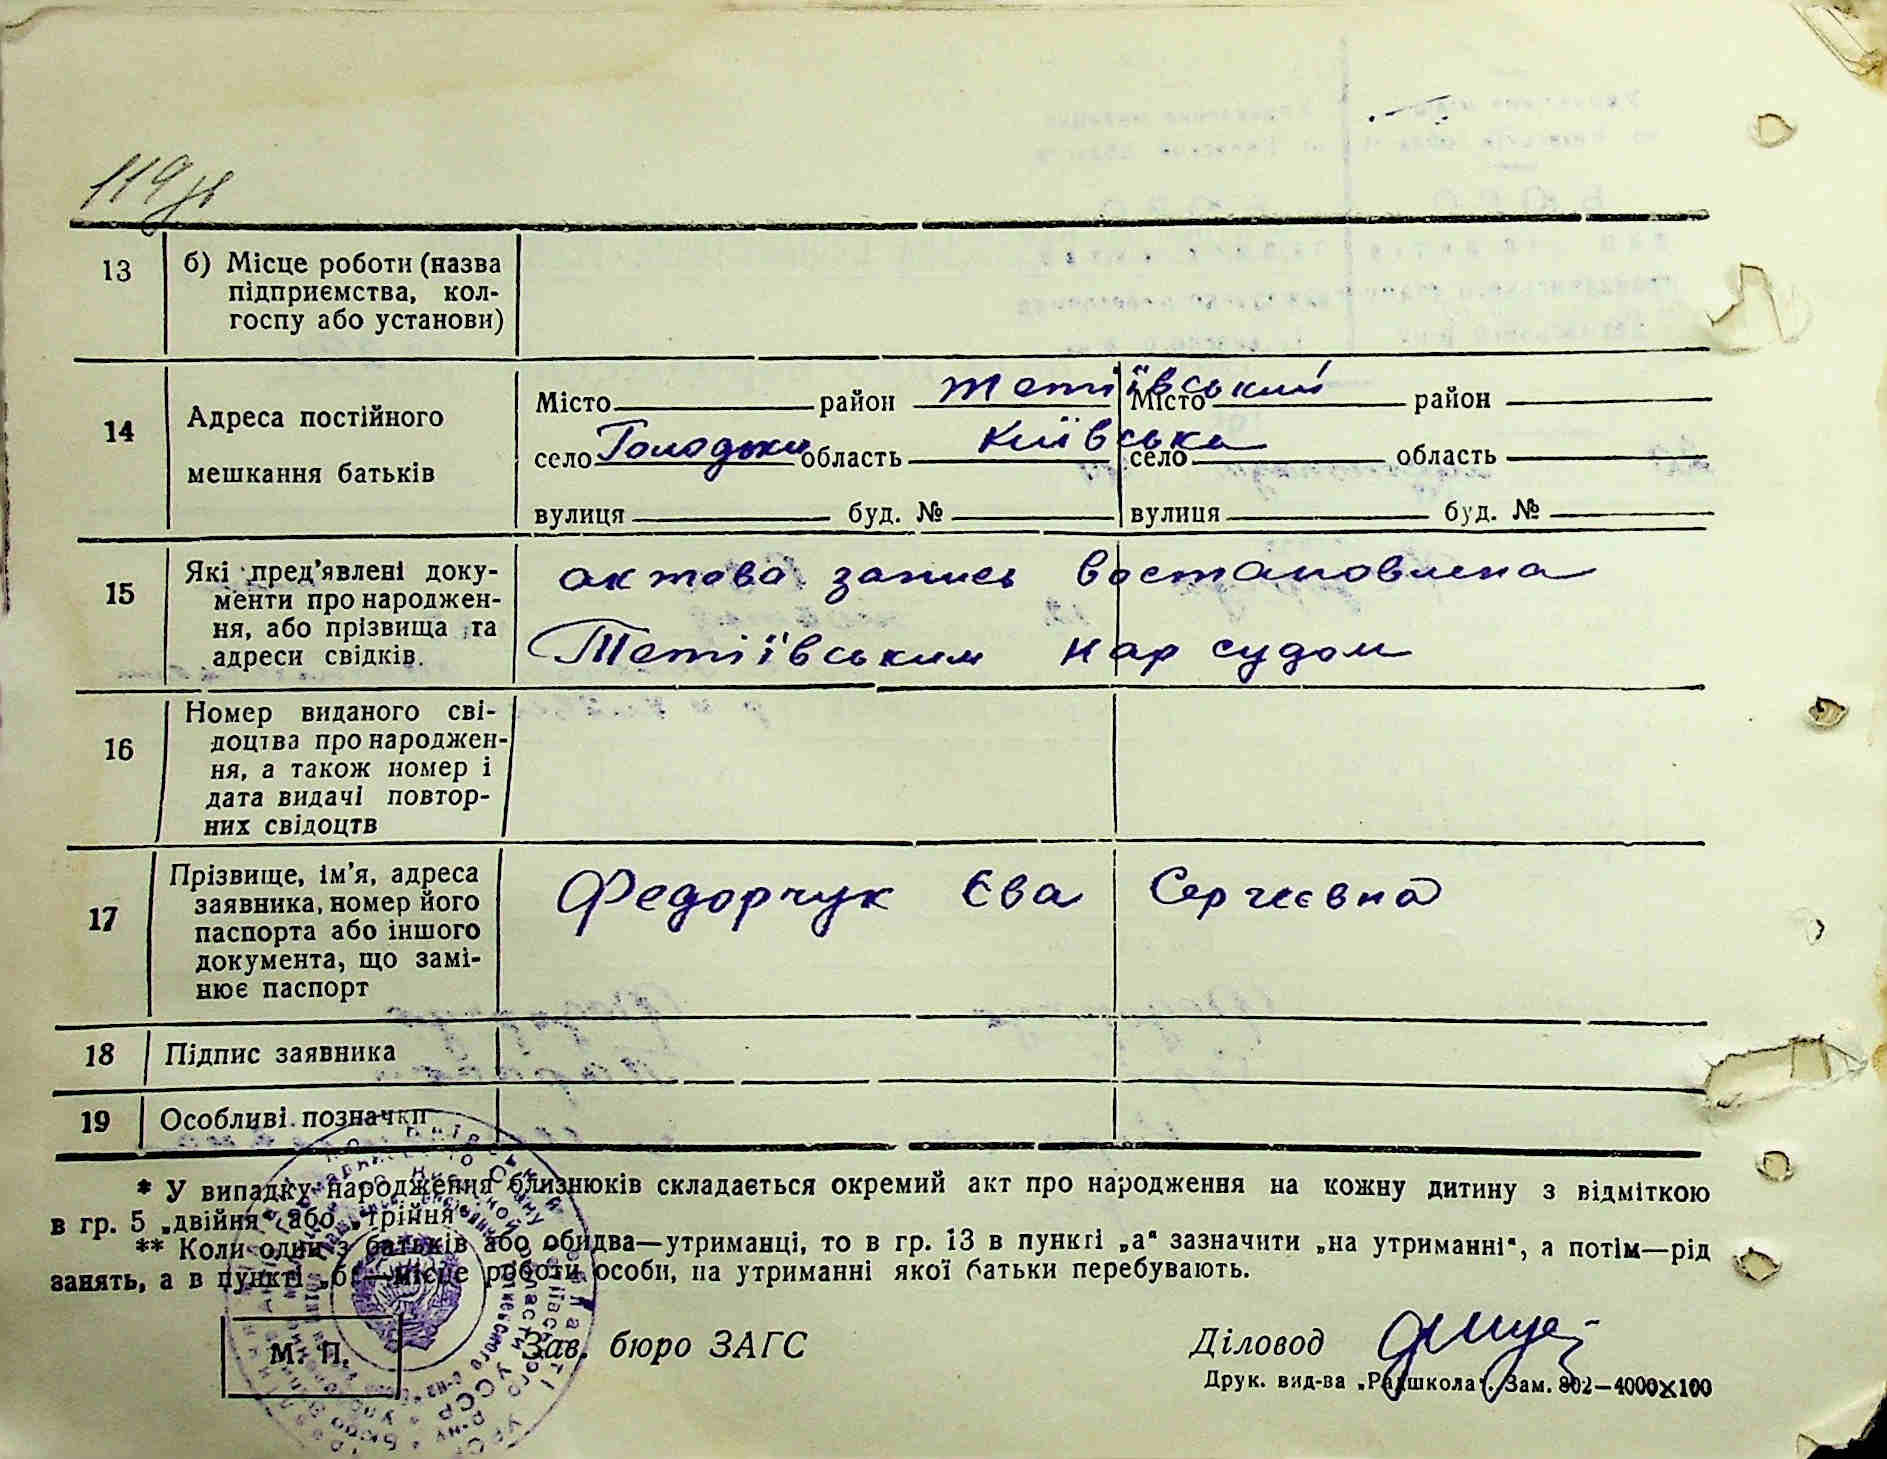 119
13 б) Місце роботи (назва
підприємства, кол-
госпу або установи)
14 Адреса постійного
мешкання батьків
Місто район Тетіївський Місто район
село Голодьки область Київська село область
вулиця буд. № вулиця буд. №
15 Які пред’явлені доку-
менти про народжен-
ня, або прізвища та
адреси свідків.
актова запись востановлена
Тетіївським нар судом
16 Номер виданого сві-
доцтва про народжен-
ня, а також номер і
дата видачі повтор-
них свідоцтв
17 Прізвище, ім’я, адреса
заявника, номер його
паспорта або іншого
документа, що замі-
нює паспорт
Федорчук Єва Сергєєвна
18 Підпис заявника
19 Особливі позначки
* У випадку народження близнюків складається окремий акт про народження на кожну дитину з відміткою
в гр. 5 „двійня“ або „трійня“.
** Коли один з батьків або обидва—утриманці, то в гр. 13 в пункті „а“ зазначити „на утриманні“, а потім—рід
занять, а в пункті „б“—місце роботи особи, на утриманні якої батьки перебувають.
М. П. Зав. бюро ЗАГС Діловод
Друк. вид-ва „Радшкола“. Зам. 802—4000×100